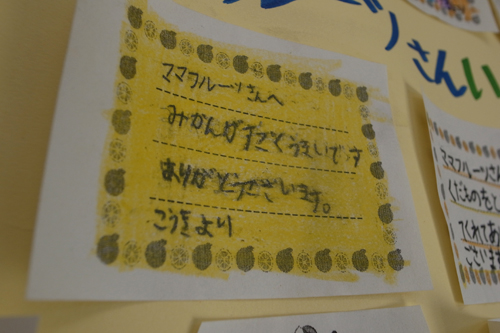 ーツさんい
ママフルーツさんへ
みかんがすごくうまいです
ありがとうございます。
こうきより
ママフルーツさん
くだものをと
てくれてあ
ございます